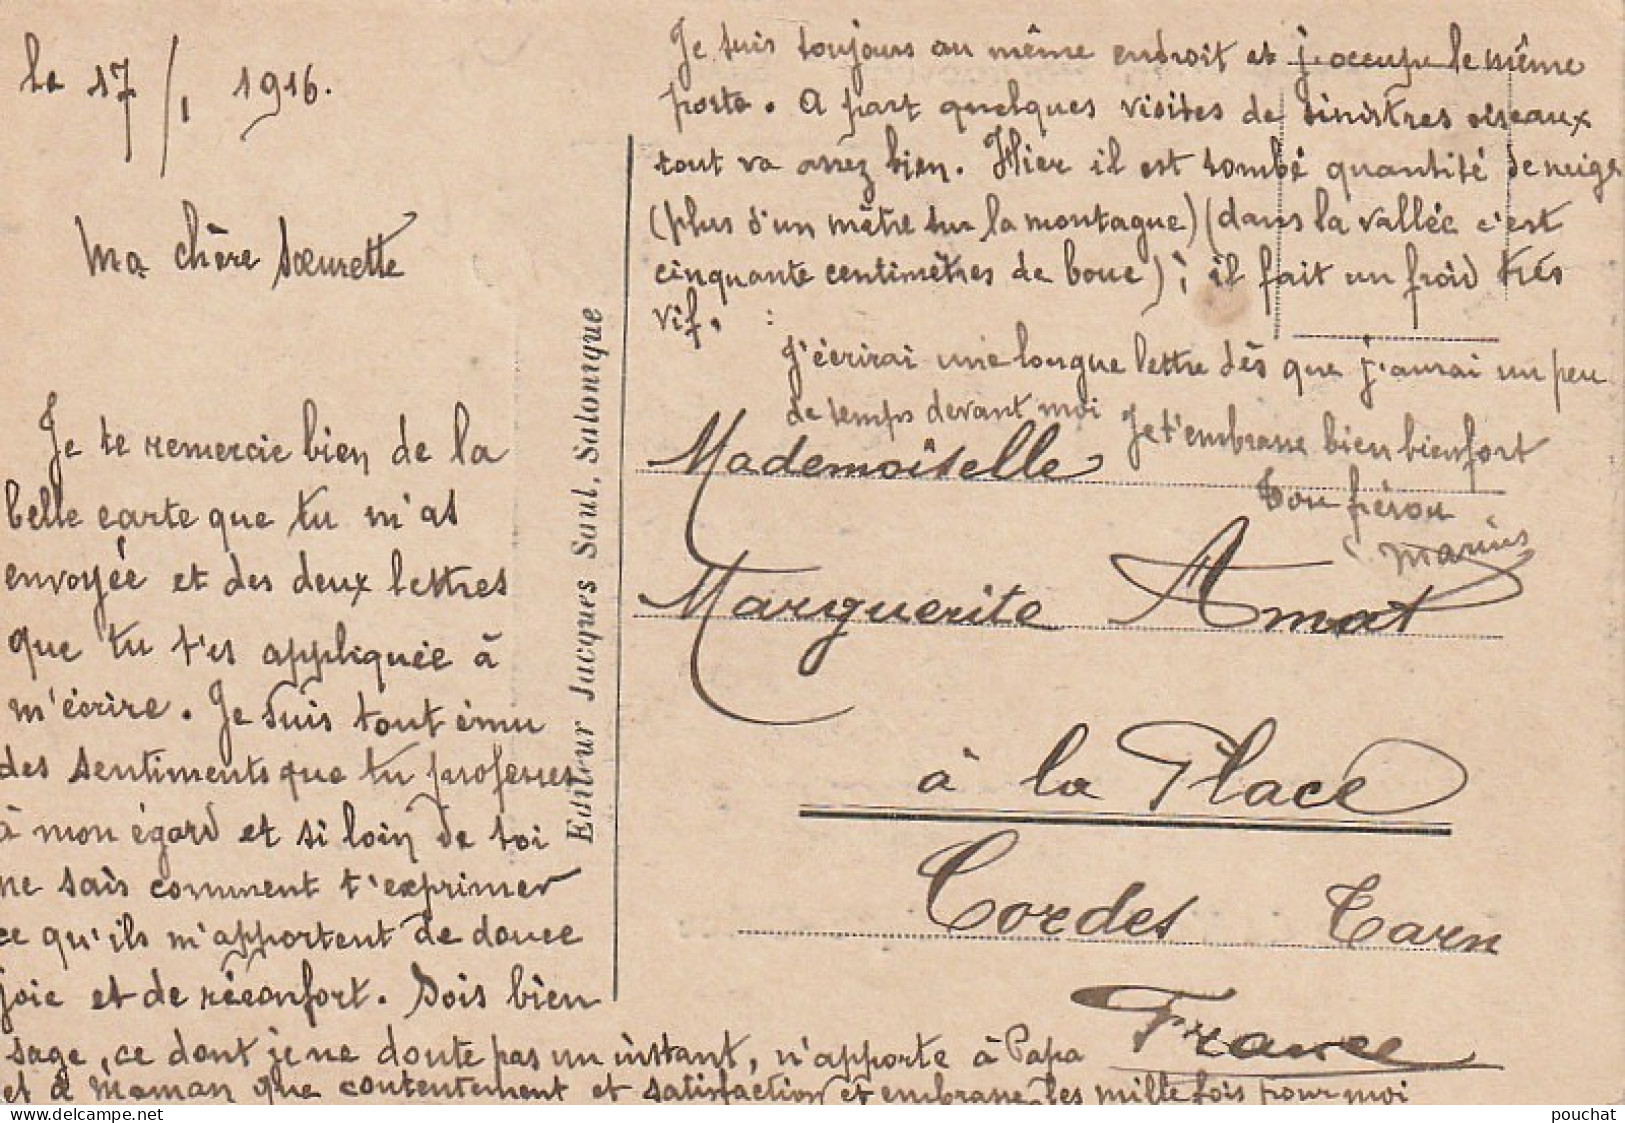 le 17/1 1916.
Ma chère sœurette
Je te remercie bien de la
belle carte que tu m'as
envoyée et des deux lettres
que tu t'es appliquée à
m'écrire. Je suis tout ému
des sentiments que tu professes
à mon égard et si loin de toi
ne sais comment t'exprimer
ce qu'ils m'apportent de douce
joie et de réconfort. Sois bien
sage, ce dont je ne doute pas un instant, n'apporte à Papa
et à Maman que contentement et satisfaction et embrasse les mille fois pour moi
Je suis toujours au même endroit et j'occupe le même
poste. A part quelques visites de sinistres oiseaux
tout va assez bien. Hier il est tombé quantité de neige
(plus d'un mètre sur la montagne) (dans la vallée c'est
cinquante centimètres de boue) ; il fait un froid très
vif.
J'écrirai une longue lettre dès que j'aurai un peu
de temps devant moi Je t'embrasse bien bien fort
Ton frérou
Marius
Editeur Jacques Saul, Salonique
Mademoiselle
Marguerite Amat
à la Place
Cordes Tarn
France
pouchat